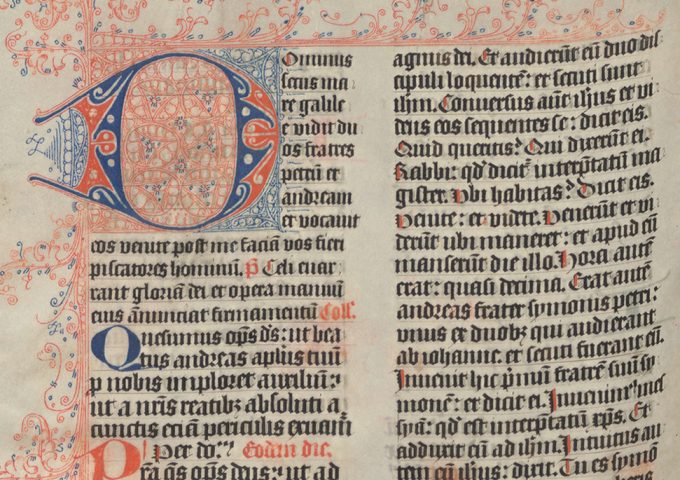 Dominus
secus ma
re galile
e vidit du
os fratres
petrū et
andream
et vocauit
eos venite post me faciā vos fieri
piscatores hominū. p̄s Celi enar
rant gloriā dei et opera manuū
eius ānunciat firmamentū Coll.
Quesumus op̄s ds̄: ut bea
tus andreas apl̄us tuus
p nobis imploret auxiliū:
ut a nr̄is reatibz absoluti a
cunctis eciā periculis exuam̄
Per do. Eodm̄ die.
Pr̄a q̄s op̄s deus: ut ad
agnus dei. Et audierūt eū duo dis
cipuli loquentē: et secuti sunt
ih̄m. Conversus aūt ih̄us et vi
dens eos sequentes se: dicit eis.
Quid queritis? Qui dixerūt ei.
Rabbi: qd̄ dicit̄ interp̄tatū ma
gister. Vbi habitas? Dicit eis.
Venite: et videte. Venerūt et vi
derūt ubi maneret: et apud eū
manserūt die illo. Hora autē
erat: quasi decima. Erat autē
andreas frater symonis petri:
vnus ex duobz qui audierant
ab iohanne. et secuti fuerant eū.
Inuenit hic p̄mū fratrē suū sy
monē: et dicit ei. Invenim̄ mes
syā: qd̄ est interp̄tatū xp̄s. Et
adduxit eū ad ih̄m. Intuitus au
tem eū ih̄us: dixit. Tu es symō